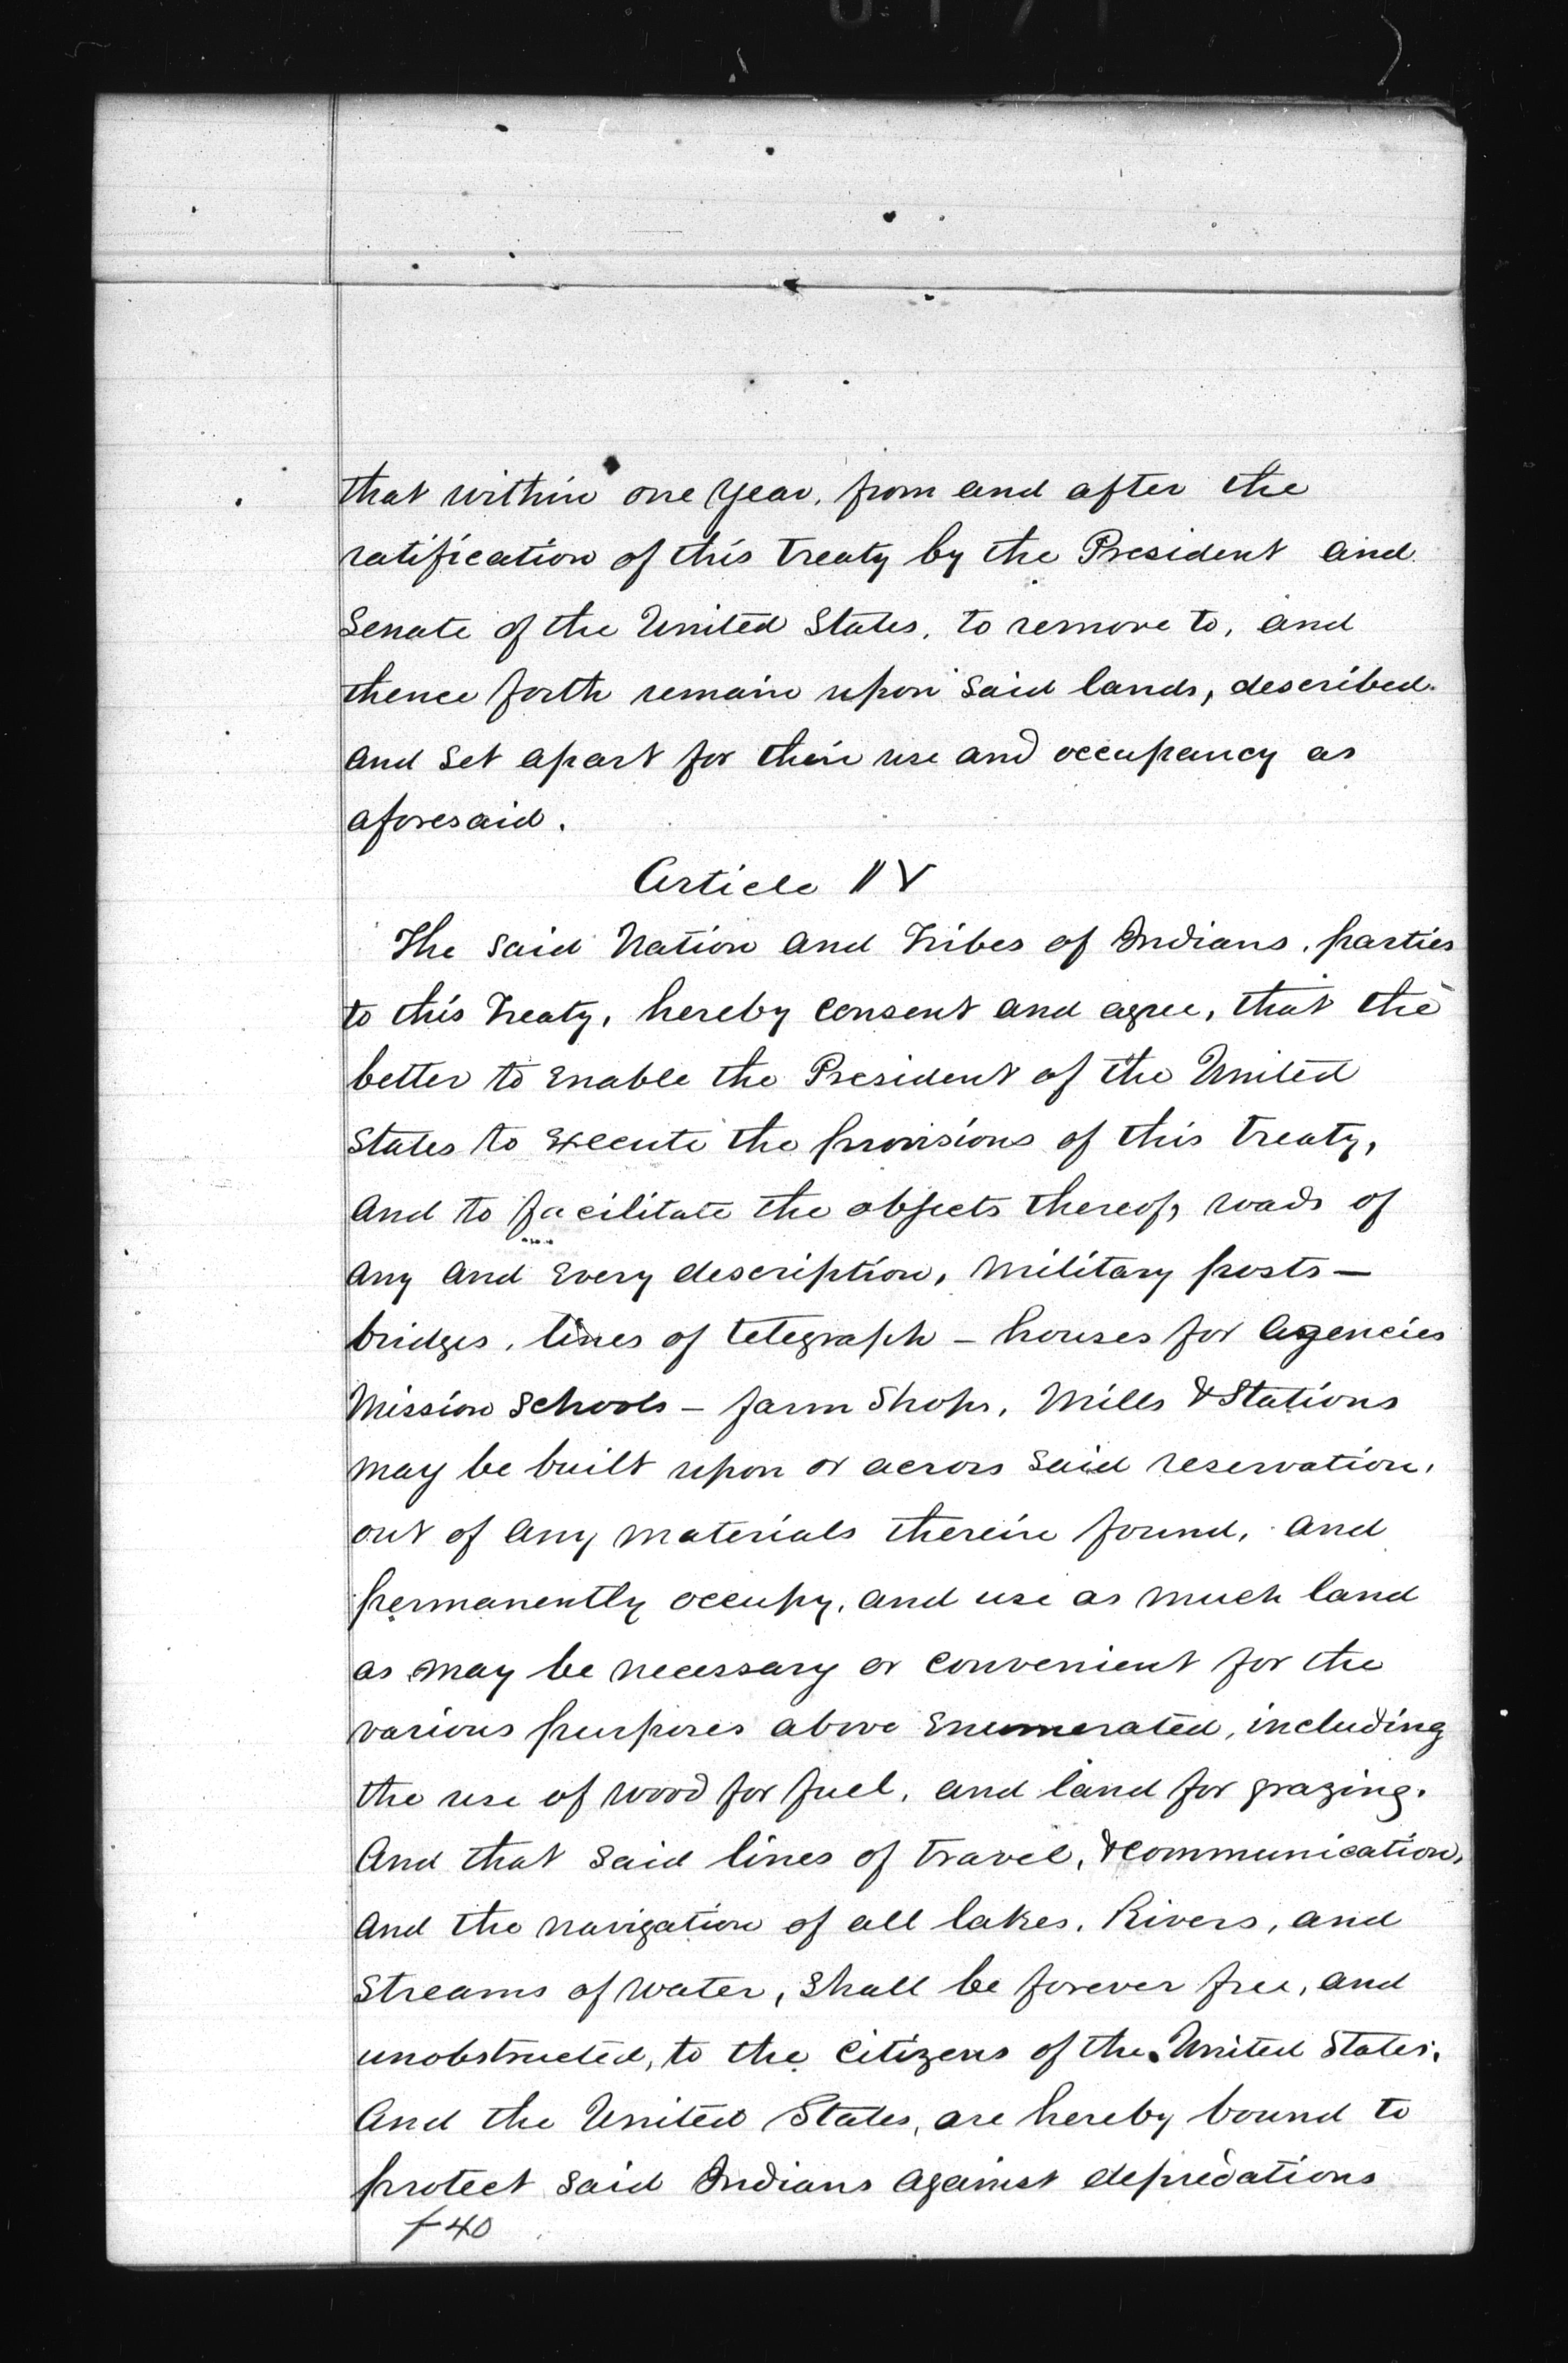 that within one year, from and after the
ratification of this treaty by the President and
Senate of the United States, to remove to, and
thence forth remain upon said lands, described
and set apart for their use and occupancy as
aforesaid.
Article IV
The said Nation and Tribes of Indians, parties
to this Treaty, hereby consent and agree, that the
better to enable the President of the United
States to execute the provisions of this treaty,
and to facilitate the objects thereof, roads of
any and every description, military posts—
bridges, lines of telegraph – houses for agencies
Mission Schools – farm Shops, Mills & Stations
may be built upon or across said reservation,
out of any materials therein found, and
permanently occupy, and use as much land
as may be necessary or convenient for the
various purposes above enumerated, including
the use of wood for fuel, and land for grazing.
And that said lines of travel, & communication,
and the navigation of all lakes, Rivers, and
Streams of water, shall be forever free, and
unobstructed, to the citizens of the United States.
And the United States, are hereby bound to
protect said Indians against depredations
f 40